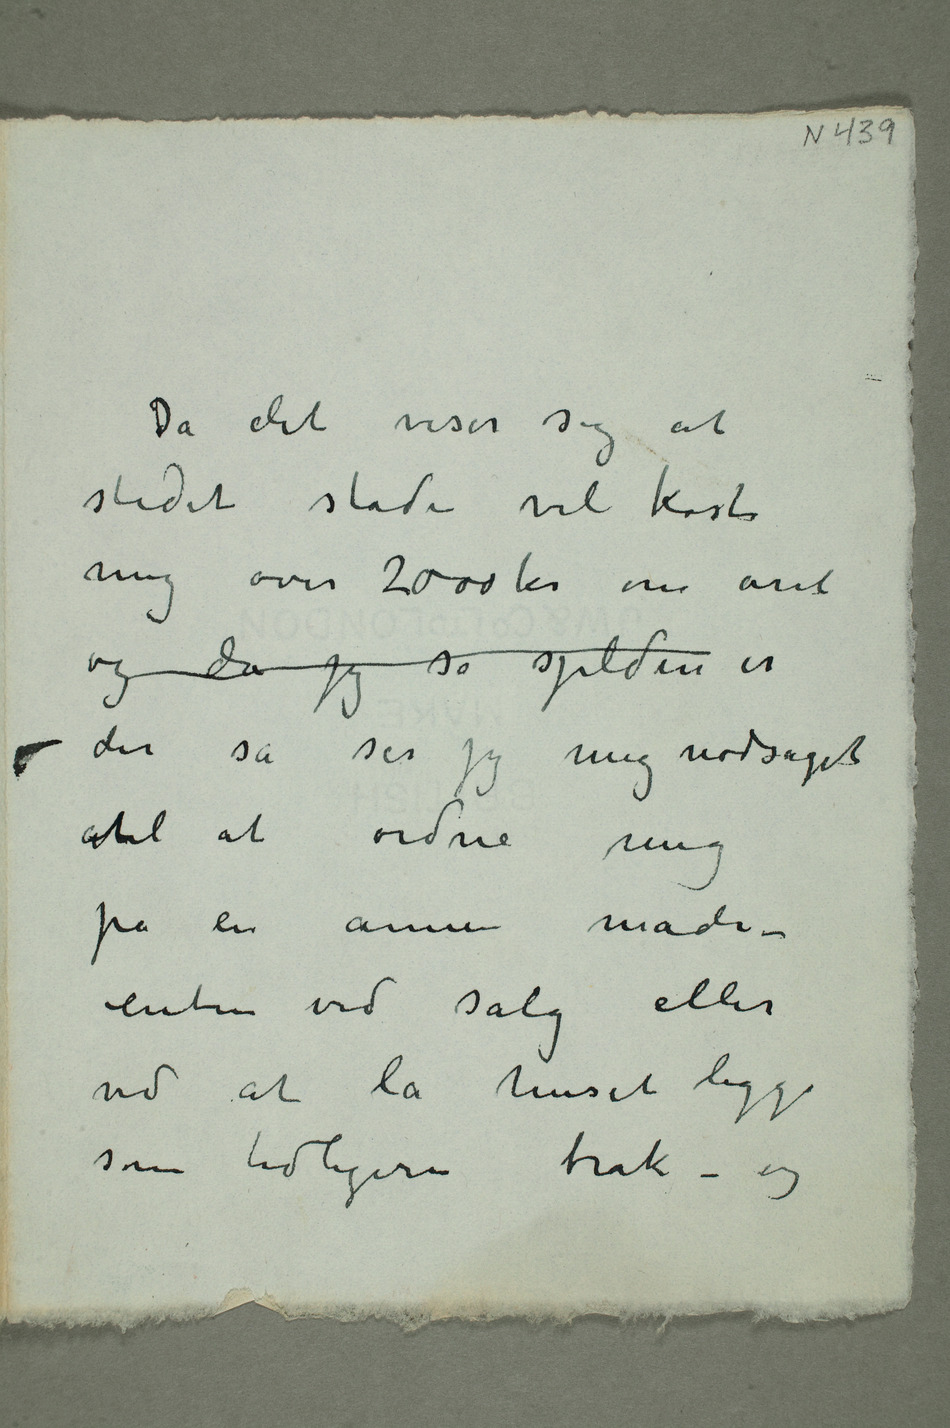 N 439
Da det viser sig at
stedet stadi vil koste
mig over 2000 kr om året
og da jeg så sjelden er
der så ser jeg mig nødsaget
til at ordne mig
på en annen måde –
enten ved salg eller
ved at la huset ligge
som tidligere brak – og